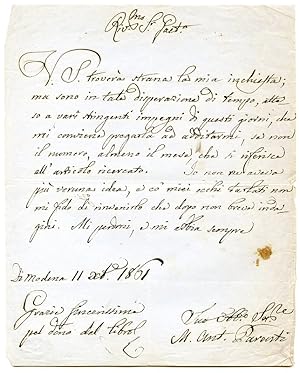 Rev.mo S.r
V. S. troverà strana la mia inchiesta;
ma sono in tale disperazione di tempo, atte
so a vari stringenti impegni di questi giorni, che
mi conviene pregarla ad additarmi, se non
il numero, almeno il mese, che si riferisce
all'articolo ricercato. Io non ne aveva
più veruna idea, e co' miei occhi
mi fido di rinvenirlo che dopo non breve inda
gini. Mi perdoni, e mi abbia sempre
Di Modena 11 1861
Grazie sincerissime
pel dono del libro
Suo
M. Ant. Parenti